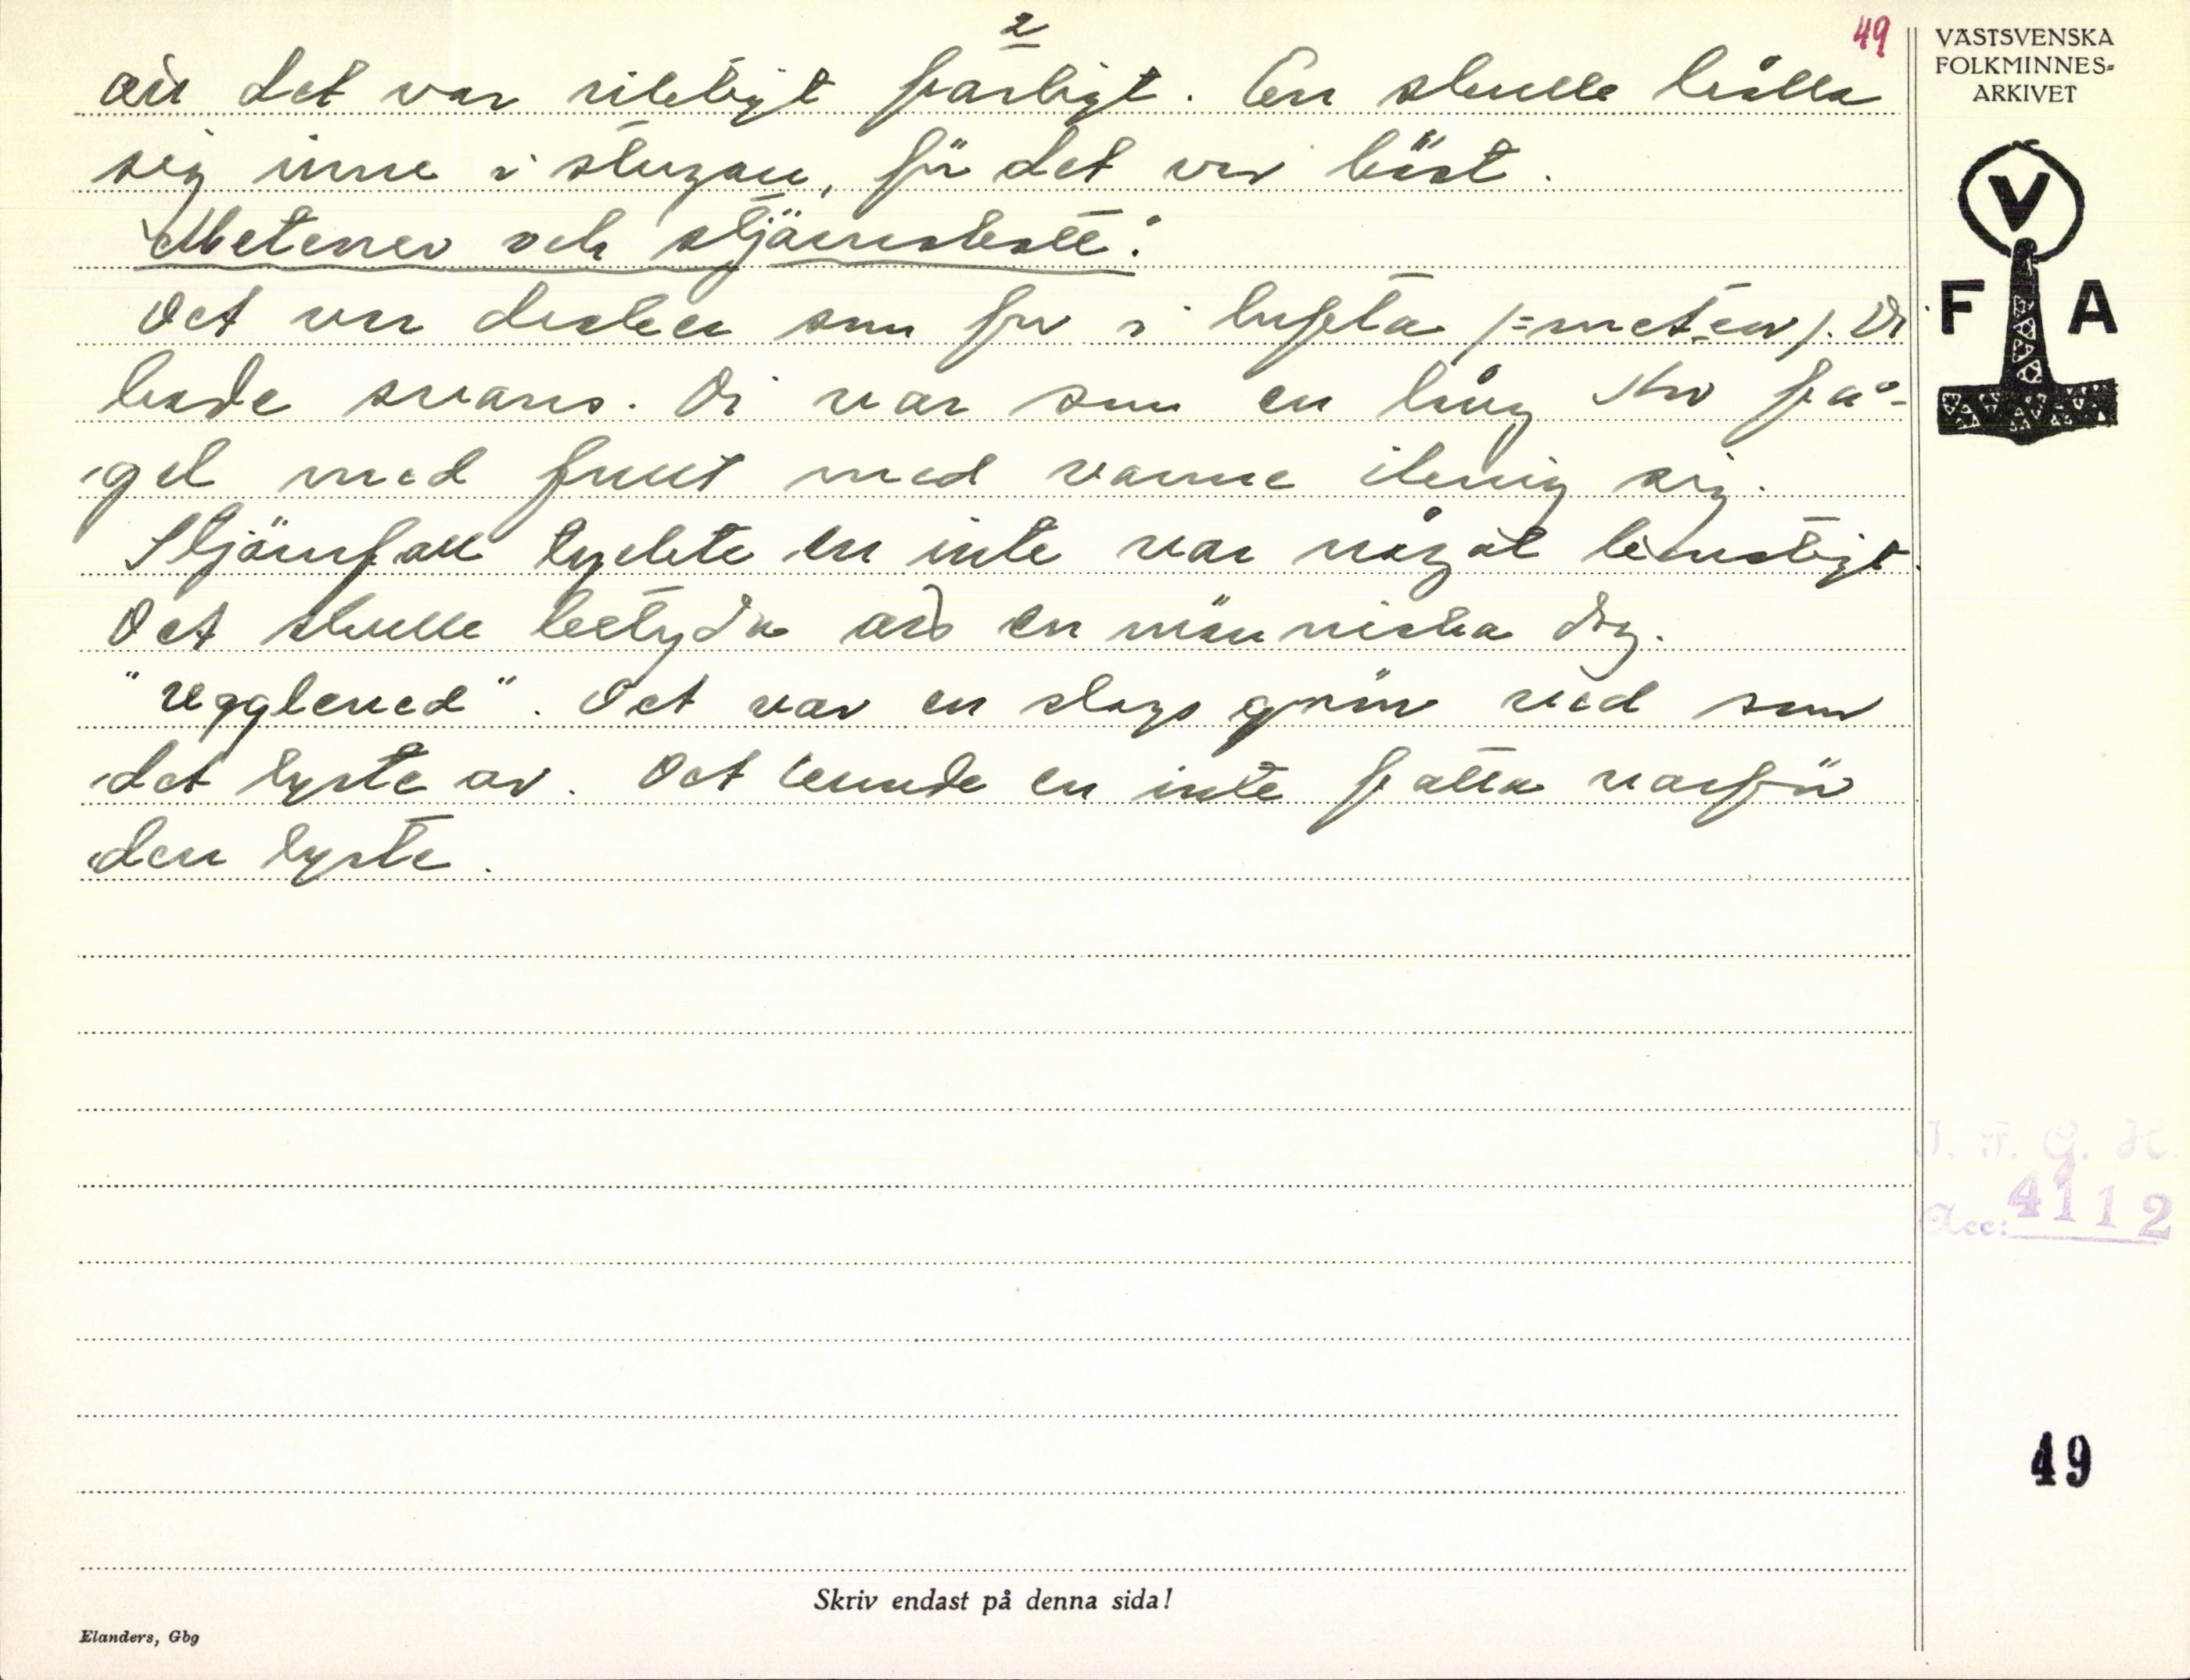 2
49
VÄSTSVENSKA
FOLKMINNES-
ARKIVET
V
F A
det var riktigt farligt. En skulle hålla
sig inne i stugan, för det var bäst.
Meteorer och stjärnskott:
Det var drakar som for i lufta /=meteor/. Di
hade svans. Di var som en lång stor få-
gel med fullt med varme ikring sig.
Stjärnfall tyckte en inte var något konstigt.
Det skulle betyda att en människa dog.
"ugglaved". Det var en slags grön ved som
det lyste av. Det kunde en inte fatta varför
den lyste.
I. F. G. H.
Acc: 4112
49
Skriv endast på denna sida!
Elanders, Gbg